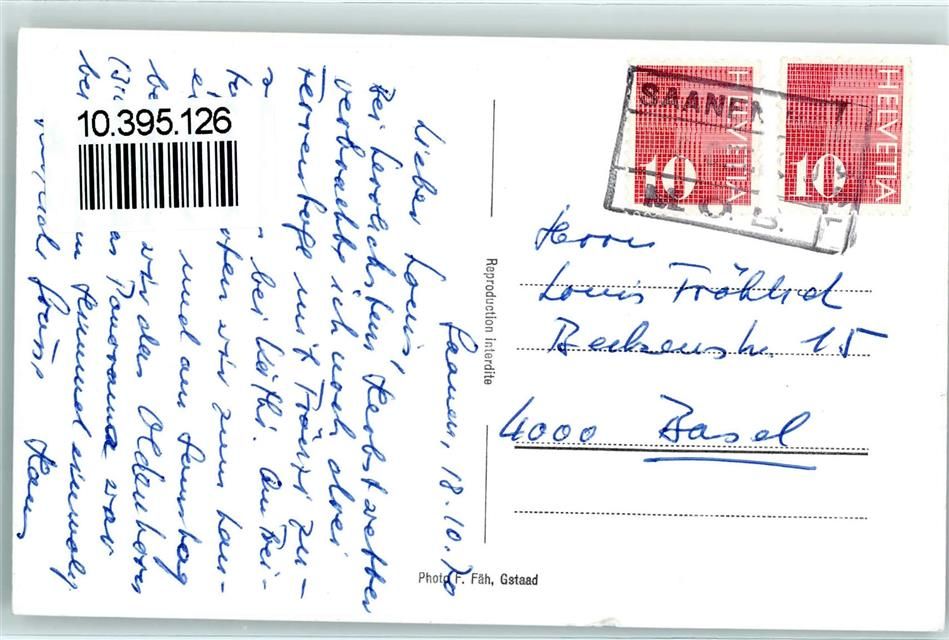 Saanen, 18.10.70
Lieber Louis,
Bei herrlichstem Herbstwetter
verbrachte ich noch drei
Ferientage mit Fränzi zu-
bei Käthi. Am Frei-
wir zum Lau-
und am Samstag
wir das Oldenhorn
Panorama war
Himmel einmalig
Gruss Hans
10.395.126
Reproduction interdite
Photo F. Fäh, Gstaad
HELVETIA
10
HELVETIA
10
SAANEN
M.O.B.
Herrn
Louis Fröhlich
Beckenstr. 15
4000 Basel